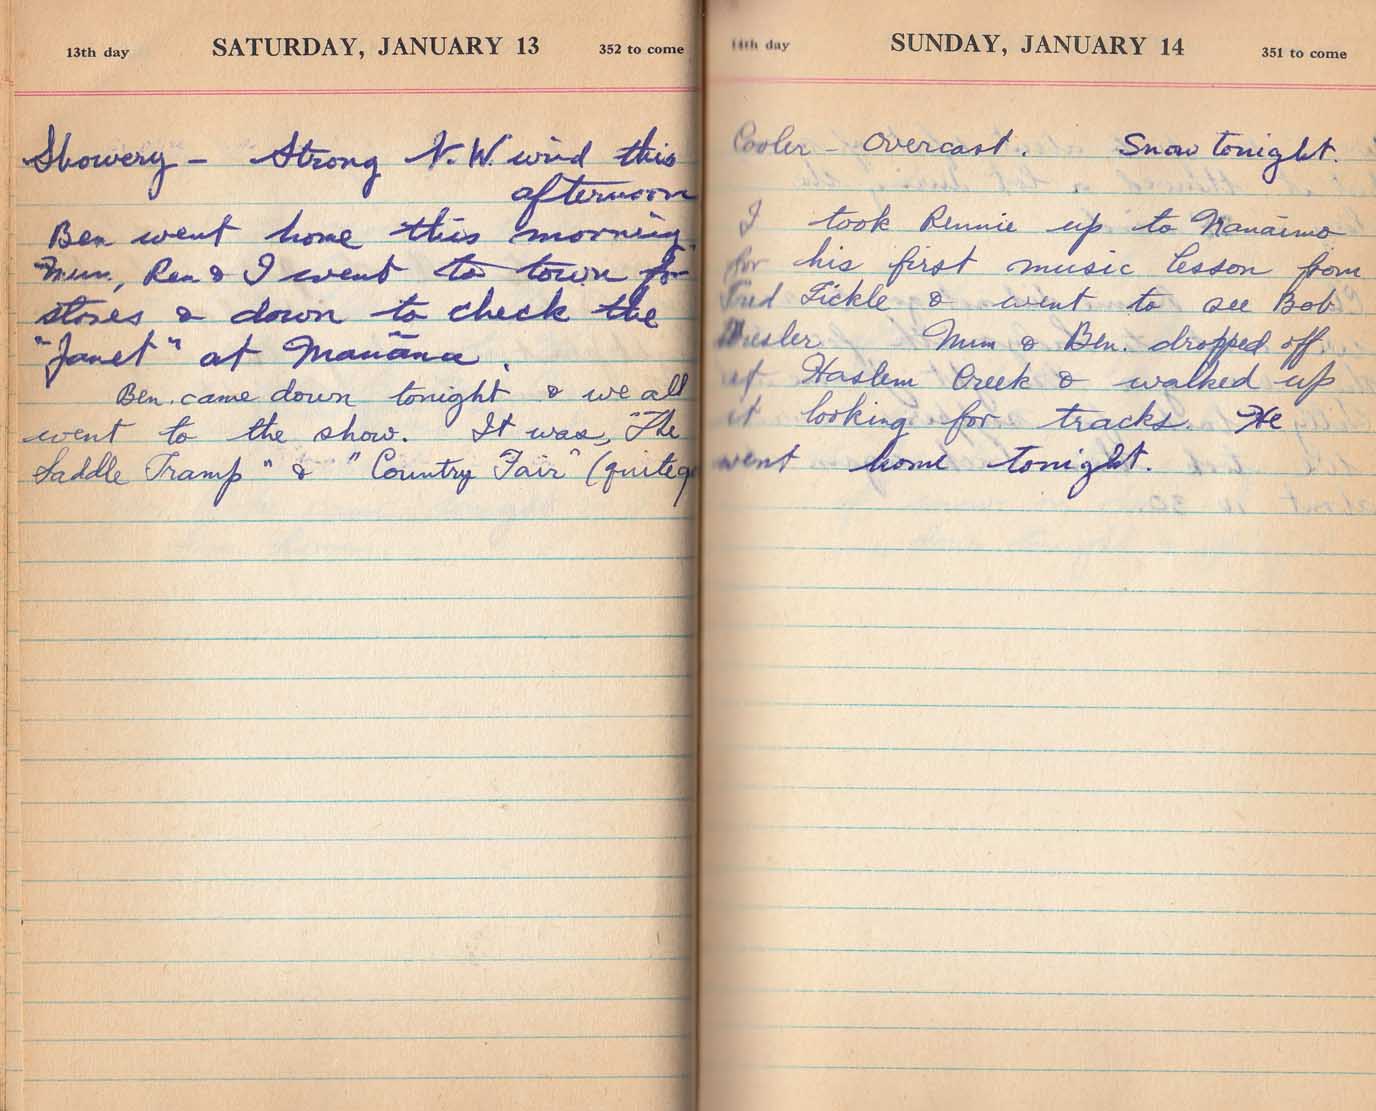 13th day SATURDAY, JANUARY 13 352 to come
Showery - Strong N.W. wind this
afternoon
Ben went home this morning.
Mum, Ren & I went to town for
stores & down to check the
"Janet" at Manāna.
Ben. came down tonight & we all
went to the show. It was, "The
Saddle Tramp" & "Country Fair" (quite g
14th day SUNDAY, JANUARY 14 351 to come
Cooler - Overcast. Snow tonight.
I took Rennie up to Nanaimo
for his first music lesson from
Fred Tickle & went to see Bob
Mum & Ben. dropped off
at Haslem Creek & walked up
it looking for tracks. He
went home tonight.